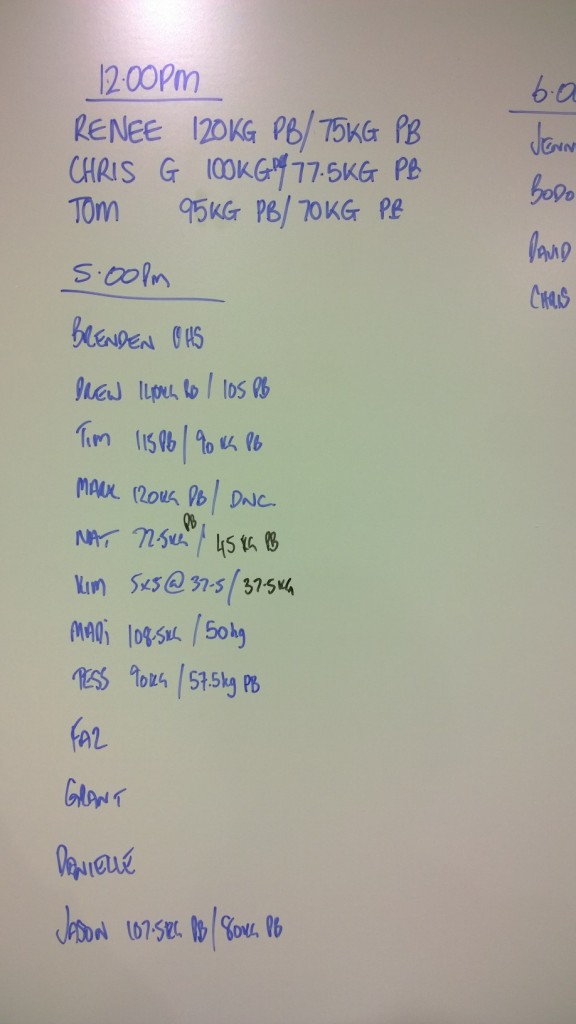 12:00PM
RENEE 120KG PB/75KG PB
CHRIS G 100KG PB/77.5KG PB
TOM 95KG PB/70KG PB
5:00Pm
BRENDEN OHS
DREW 140KG PB/105 PB
Tim 115PB/90KG PB
MARK 120KG PB/DNC
NAT 77.5KG PB/45KG PB
Kim 5x5@37.5/37.5KG
MADi 108.5KG/50kg
TESS 90KG/57.5kg PB
FAZ
GRANT
DANIELLE
JASON 107.5KG PB/80KG PB
6:0
JENN
BODO
DAVID
CHRIS